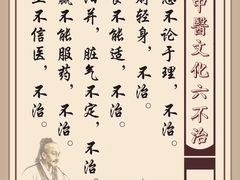 中醫文化六不治
恣不论于理，不治。
财轻身，不治。
食不能适，不治。
并，脏气不定，不治。
羸不能服药，不治。
不信医，不治。